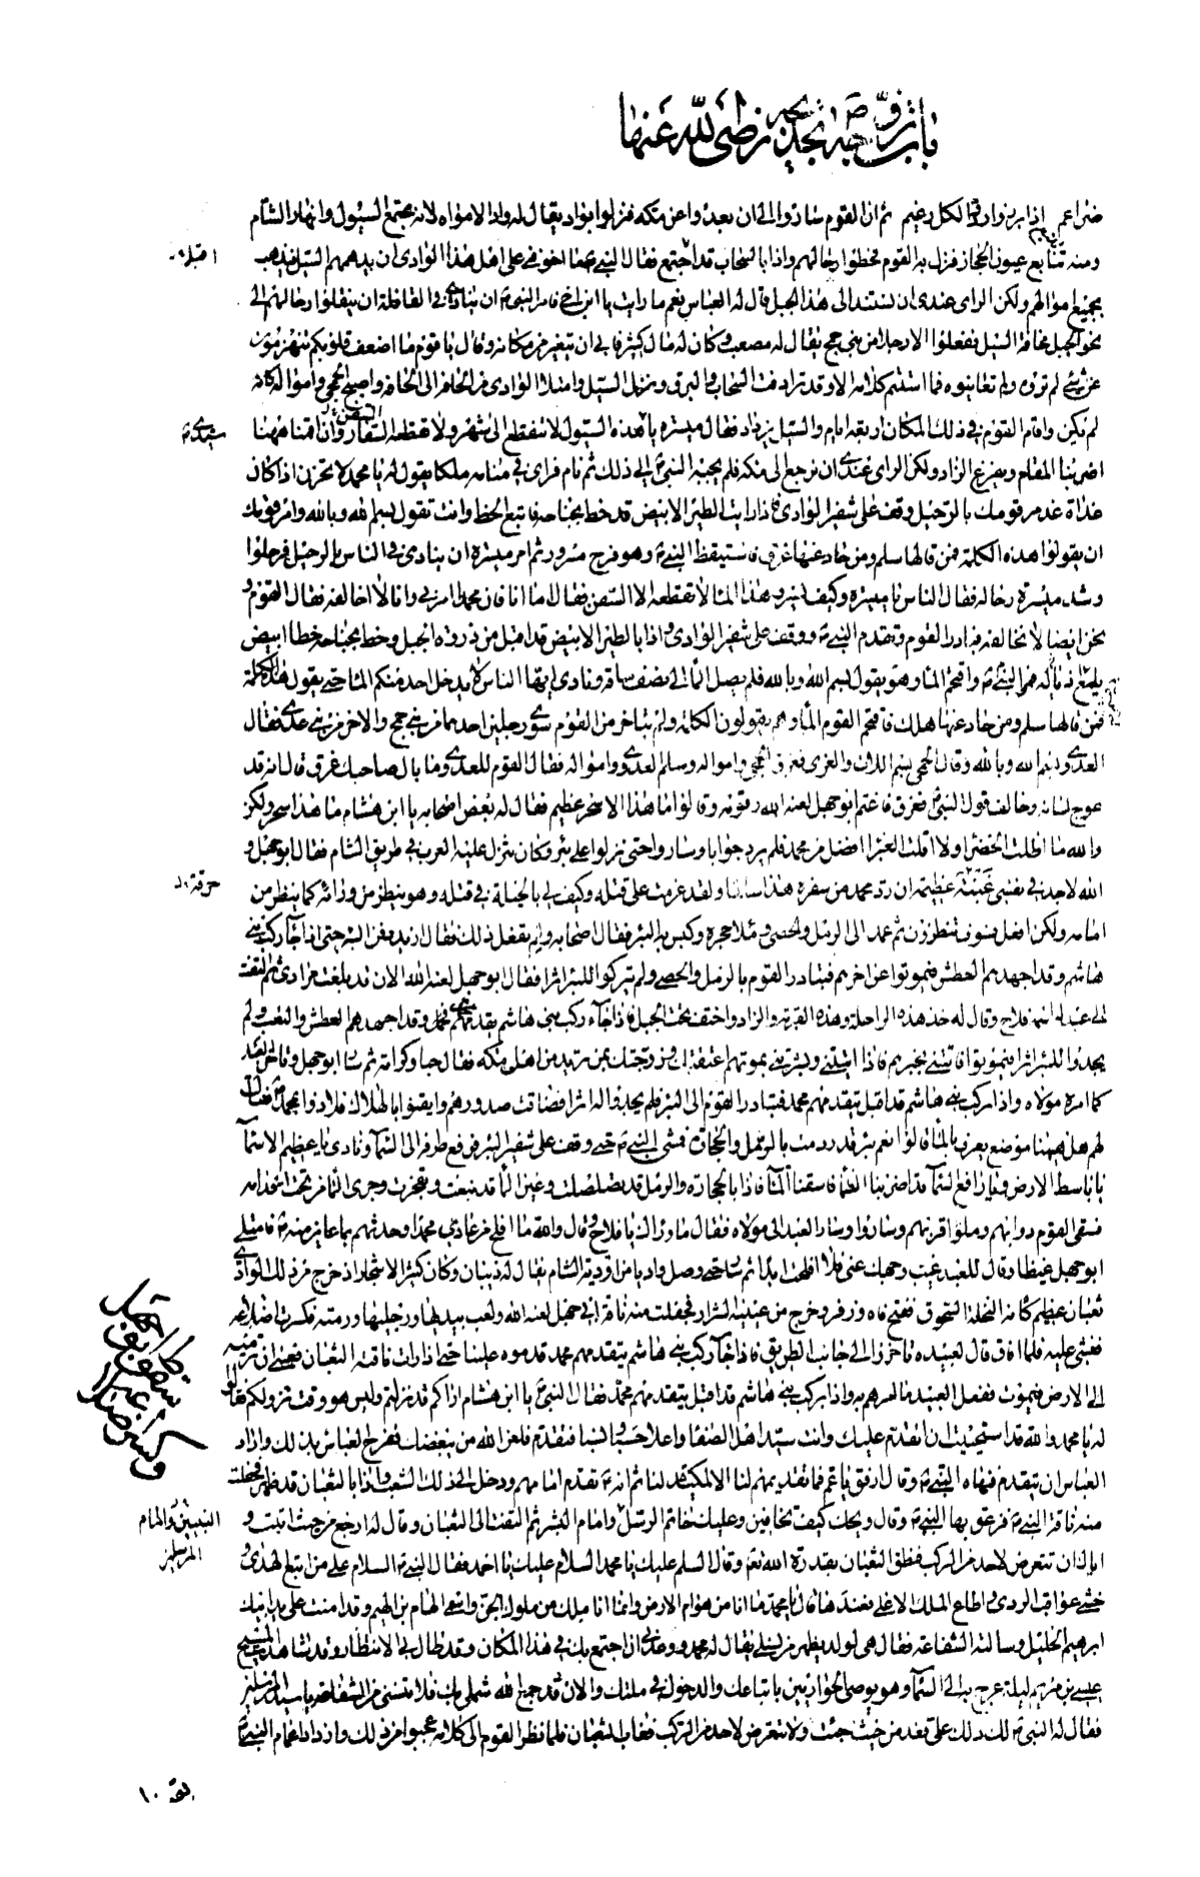 باب تزوجه بخديجة رضي الله عنها
ثم ان القوم ساروا الى ان بعدوا عن مكه فنزلوا بواد يقال له واد الامواه لانه مجتمع السيول وانهار الشام
ومنه تنابع عيون الحجاز فنزل به القوم وحطوا رحالهم واذا بالسحاب قد اجتمع فقال النبي ما اخوفني على اهل هذا الوادى ان يدهمهم السيل فيذهب
بجميع اموالهم ولكن الراى عندى ان نستند الى هذا الجبل قال له العباس نعم ما رايت يا ابن اخى فامر النبي ان ينادى فى القافله ان ينقلوا رحالهم الى
نحو الجبل مخافة السيل ففعلوا الا رجلا من بنى جمح يقال له مصعب وكان له مال كثير فابى ان يتغير من مكانه وقال يا قوم ما اضعف قلوبكم تنهزمون
عن شئ لم تروه ولم تعاينوه فما استتم كلامه الا وقد ترادفت السحاب والبرق ونزل السيل وامتلا الوادى من الحافه الى الحافه واصبح الجمحى وامواله كانه
لم يكن واقام القوم فى ذلك المكان اربعة ايام والسيل يزداد فقال ميسره يا هذه السيول لا تنقطع الى شهر ولا تقطعه السفار وان اقمنا ههنا
اضر بنا المقام ويفرغ الزاد ولكن الراى عندى ان نرجع الى مكه فلم يجبه النبي الى ذلك ثم نام فراى فى منامه ملكا يقول له يا محمد لا تحزن اذا كان
غداة غد مر قومك بالرحيل وقف على شفير الوادى فاذا رايت الطير الابيض قد خط بجناحه فاتبع الخط وانت تقول بسم الله وبالله وامر قومك
ان يقولوا هذه الكلمة فمن قالها سلم ومن حاد عنها غرق فاستيقظ النبي وهو فرح مسرور ثم امر ميسره ان ينادى فى الناس بالرحيل فرحلوا
وشد ميسرة رحاله فقال الناس يا ميسره وكيف نسير وهذا الماء لا تقطعه الا السفن فقال اما انا فان محمدا امرنى وانا لا اخالفه فقال القوم و
نحن ايضا لا نخالفه فبادر القوم وتقدم النبي ووقف على شفير الوادى واذا بالطير الابيض قد اقبل من ذروة الجبل وخط بجناحه خطا ابيض
واقتحم الماء وهو يقول بسم الله وبالله فلم يصل الماء الى نصف ساقه ونادى ايها الناس لا يدخل احد منكم الماء حتى يقول هذه الكلمة
فمن قالها سلم ومن حاد عنها هلك فاقتحم القوم الماء وهم يقولون الكلمة ولم يتاخر من القوم سوى رجلين احدهما من بنى جمح والاخر من بنى عدى فقال
العدوى بسم الله وبالله وقال الجمحى بسم اللات والعزى فغرق الجمحى وامواله وسلم العدوى وامواله فقال القوم للعدوى ما بال صاحبك غرق قال انه قد
عوج لسانه وخالف قول النبي فغرق فاغتم ابو جهل لعنه الله وقومه وقالوا ما هذا الا سحر عظيم فقال له بعض اصحابه يا ابن هشام ما هذا سحر ولكن
والله ما اظلت الخضراء ولا اقلت الغبراء افضل من محمد فلم يرد جوابا وسار وا حتى نزلوا على بئر وكان ينزل عليه العرب فى طريق الشام فقال ابو جهل و
الله لاجد فى نفسى غبنة عظيمة ان رد محمد من سفره هذا سالما ولقد عزمت على قتله وكيف لى بالحيلة فى قتله وهو ينظر من ورائه كما ينظر من
امامه ولكن افعل فسوف تنظرون ثم عمد الى الرمل والحصى وملا حجره وكبس به البئر فقال اصحابه ولم تفعل ذلك فقال اريد دفن البئر حتى اذا جاء ركب بنى
هاشم وقد اجهدهم العطش فيموتوا عن اخرهم فتبادر القوم بالرمل والحصى ولم يتركوا للبئر اثرا فقال ابو جهل لعنه الله الان قد بلغت مرادى ثم التفت
الى عبد له اسمه فلاح وقال له خذ هذه الراحلة وهذه القربة والزاد واختف تحت الجبل فاذا جاء ركب بنى هاشم يقدمهم محمد وقد اجهدهم العطش والتعب ولم
يجدوا للبئر اثرا فيموتوا فاتنى بخبرهم فاذا اتيتنى وبشرتنى بموتهم اعتقتك وزوجتك بمن تريد من اهل مكه فقال حبا وكرامة ثم سار ابو جهل وتاخر العبد
كما امره مولاه واذا بركب بنى هاشم قد اقبل يتقدمهم محمد فتبادر القوم الى البئر فلم يجدوا له اثرا فضاقت صدورهم وايقنوا بالهلاك فلاذوا بمحمد فقال
لهم هل ههنا موضع يعرف بالماء قالوا نعم بئر قد ردمت بالرمل والحجارة فمشى النبي حتى وقف على شفير البئر فرفع طرفه الى السماء ونادى يا عظيم الاسماء
يا باسط الارض ويا رافع السماء قد اضر بنا الظماء فاسقنا الماء فاذا بالحجارة والرمل قد تصلصلت وعين الماء قد نبعت وتفجرت وجرى الماء من تحت اقدامه
فسقى القوم دوابهم وملؤا قربهم وساروا وسار العبد الى مولاه فقال ما وراك يا فلاح قال والله ما افلح من عادى محمدا وحدثهم بما عاين منه فامتلى
ابو جهل غيظا وقال للعبد غيب وجهك عنى فلا افلحت ابدا ثم سار حتى وصل واديا من اودية الشام يقال له ذبيان وكان كثير الاشجار اذ خرج من ذلك الوادى
ثعبان عظيم كانه النخلة السحوق ففتح فاه وزفر وخرج من عينيه الشرار فجفلت منه ناقة ابى جهل لعنه الله ولعبت بيديها ورجليها ورمته فكسرت اضلاعه
فغشى عليه فلما افاق قال لعبيده تاخروا الى جانب الطريق فاذا جاء ركب بنى هاشم يتقدمهم محمد قدموه علينا حتى اذا رات ناقته الثعبان فعسى ان ترميه
الى الارض فيموت ففعل العبيد ما امرهم به واذا بركب بنى هاشم قد اقبل يتقدمهم محمد فقال النبي يا ابن هشام اراكم قد نزلتم وليس هو وقت نزولكم فقال
له يا محمد والله قد استحييت ان اتقدم عليك وانت سيد اهل الصفا واعلا حسبا ونسبا فتقدم فلعن الله من يبغضك ففرح العباس بذلك واراد
العباس ان يتقدم فنهاه النبي وقال ارفق يا عم فما تقديمهم لنا الا لمكيدة لنا ثم انه تقدم امامهم ودخل الى ذلك الشعب واذا بالثعبان قد ظهر فجفلت
منه ناقة النبي فزعق بها النبي وقال ويحك كيف تخافين وعليك خاتم الرسل وامام البشر ثم التفت الى الثعبان وقال له ارجع من حيث اتيت و
اياك ان تتعرض لاحد من الركب فنطق الثعبان بقدرة الله تع وقال السلم عليك يا محمد السلام عليك يا احمد فقال النبي السلام على من اتبع الهدى
خشى عواقب الردى واطاع الملك الاعلى فعندها قال يا محمد ما انا من هوام الارض وانما انا ملك من ملوك الجن واسمى الهام بن الهيم وقد امنت على يد ابيك
ابرهيم الخليل وسالته الشفاعة فقال هى لولد يظهر من نسلى يقال له محمد ووعدنى ان اجتمع بك فى هذا المكان وقد طال بى الانتظار وقد شاهدت المسيح
عيسى بن مريم ليلة عرج به الى السماء وهو يوصى الحواريين باتباعك والدخول فى ملتك والان قد جمع الله شملى بك فلا تنسنى من الشفاعة يا سيد المرسلين
فقال له النبي لك ذلك على فعد من حيث جئت ولا تتعرض لاحد من الركب فغاب الثعبان فلما نظر القوم الى كلامه عجبوا من ذلك وازداد اعمام النبي
سيدى
حرقة
النبيين وامام
المرسلين
١٠